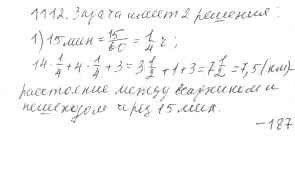 1112. Задача имеет 2 решения:
1) 15 мин = 15/60 = 1/4 ч;
14 · 1/4 + 4 · 1/4 + 3 = 3 1/2 + 1 + 3 = 7 1/2 = 7,5 (км)
расстояние между всадником и
пешеходом через 15 мин.
– 187